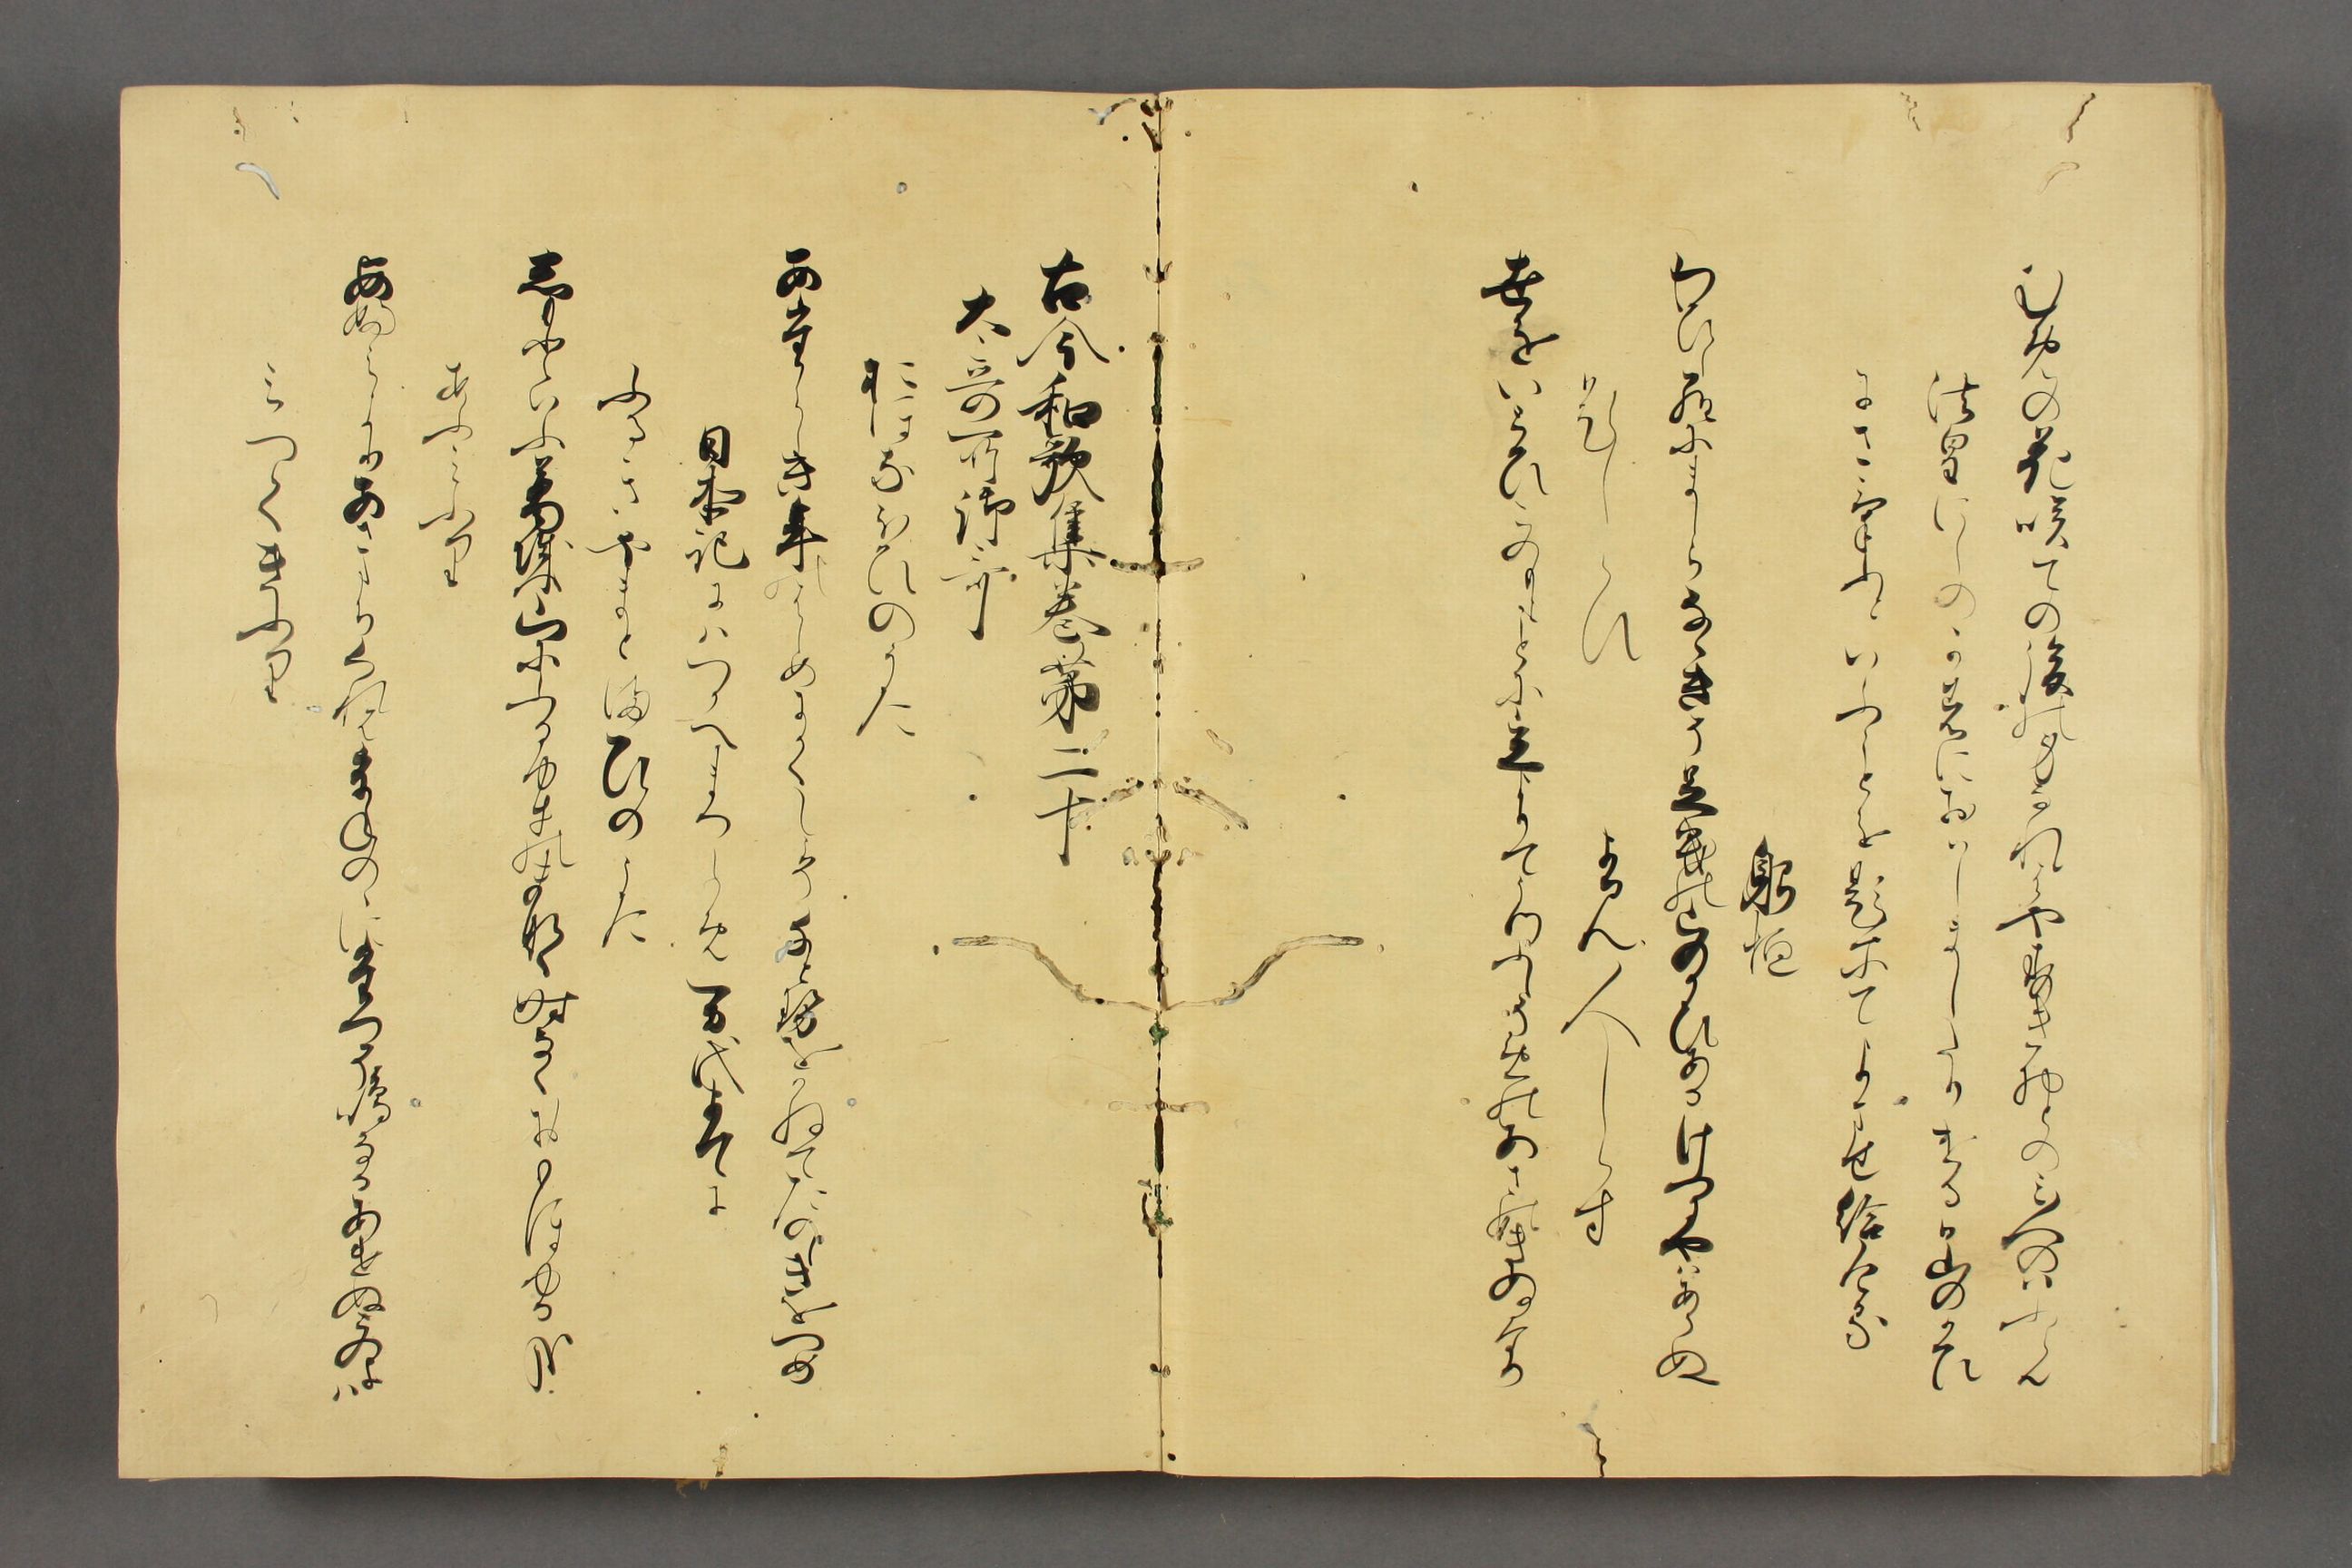 むめの花咲ての後のみなれはやすき物とのみ人のいふらん
法皇にしの河におはしましたりける日さる山のかひ
にさけふといふことを題にてよませ給ける
躬恒
わひしらにましらななきそ足曳の山のかひあるけふにやはあらぬ
題しらす　よみ人しらす
世をいとひこのもとことに立よりてうつふしそめのあさのきぬなり
古今和歌集巻第二十
大哥所御哥
おほなほひのうた
あたらしき年のはしめにかくしこそ千とせをかねてたのしきをつめ
日本記にはつかへまつらめ万代まてに
ふるきやまとまひのうた
しもとゆふ葛城山にふる雪のまなく時なくおもほゆる哉
あふみふり
近江よりあさたちくれはうねのゝにたつそ鳴なるあけぬこのよは
みつくきふり